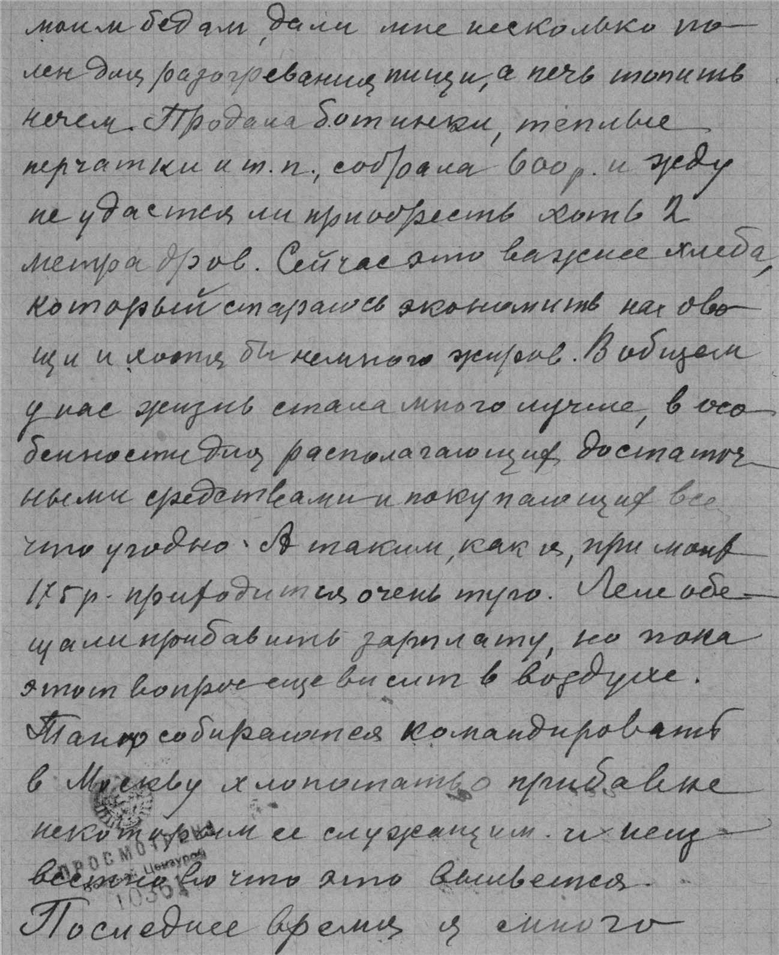 моим бедам, дали мне несколько по-
лен для разогревания пищи, а печь топить
нечем. Продала ботинки, теплые
перчатки и т.п., собрала 600 р. и жду
не удастся ли приобресть хоть 2
метра дров. Сейчас это важнее хлеба,
который стараюсь экономить на ово-
щи и хотя бы немного жиров. В общем
у нас жизнь стала много лучше, в осо-
бенности для располагающих достаточ-
ными средствами и покупающих все
что угодно. А таким, как я, при моих
175 р. приходится очень туго. Леле обе-
щали прибавить зарплату, но пока
этот вопрос еще висит в воздухе.
Таню собираются командировать
в Москву хлопотать о прибавке
некоторым ее служащим и неиз-
вестно во что это выльется.
ПРОСМОТРЕНО
Военной Цензурой
10361
Последнее время я много